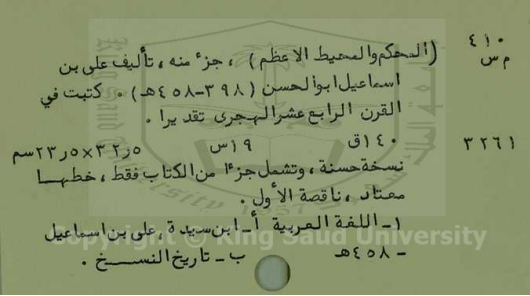 ٤١٠
م س
(المحكم والمحيط الاعظم) ، جزء منه ، تأليف على بن
اسماعيل ابو الحسن (٣٩٨-٤٥٨هـ) . كتبت في
القرن الرابع عشر الهجرى تقديرا .
١٤٠ق ١٩س ٣٢٫٥×٢٣٫٥سم
٣٢٦١
نسخة حسنة ، وتشمل جزءًا من الكتاب فقط ، خطها
معتاد ، ناقصة الأول .
١- اللغة العربية أ- ابن سيدة ، على بن اسماعيل
- ٤٥٨هـ ب- تاريخ النسخ .
Copyright © King Saud University